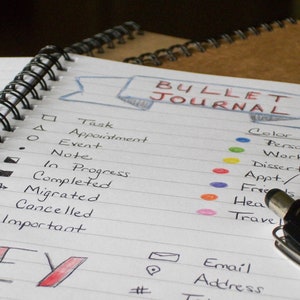 BULLET
JOURNAL
Task
Appointment
Event
Note
In Progress
Completed
Migrated
Cancelled
Important
Color
Work
Appt.
Travel
EY
Email
Address
#